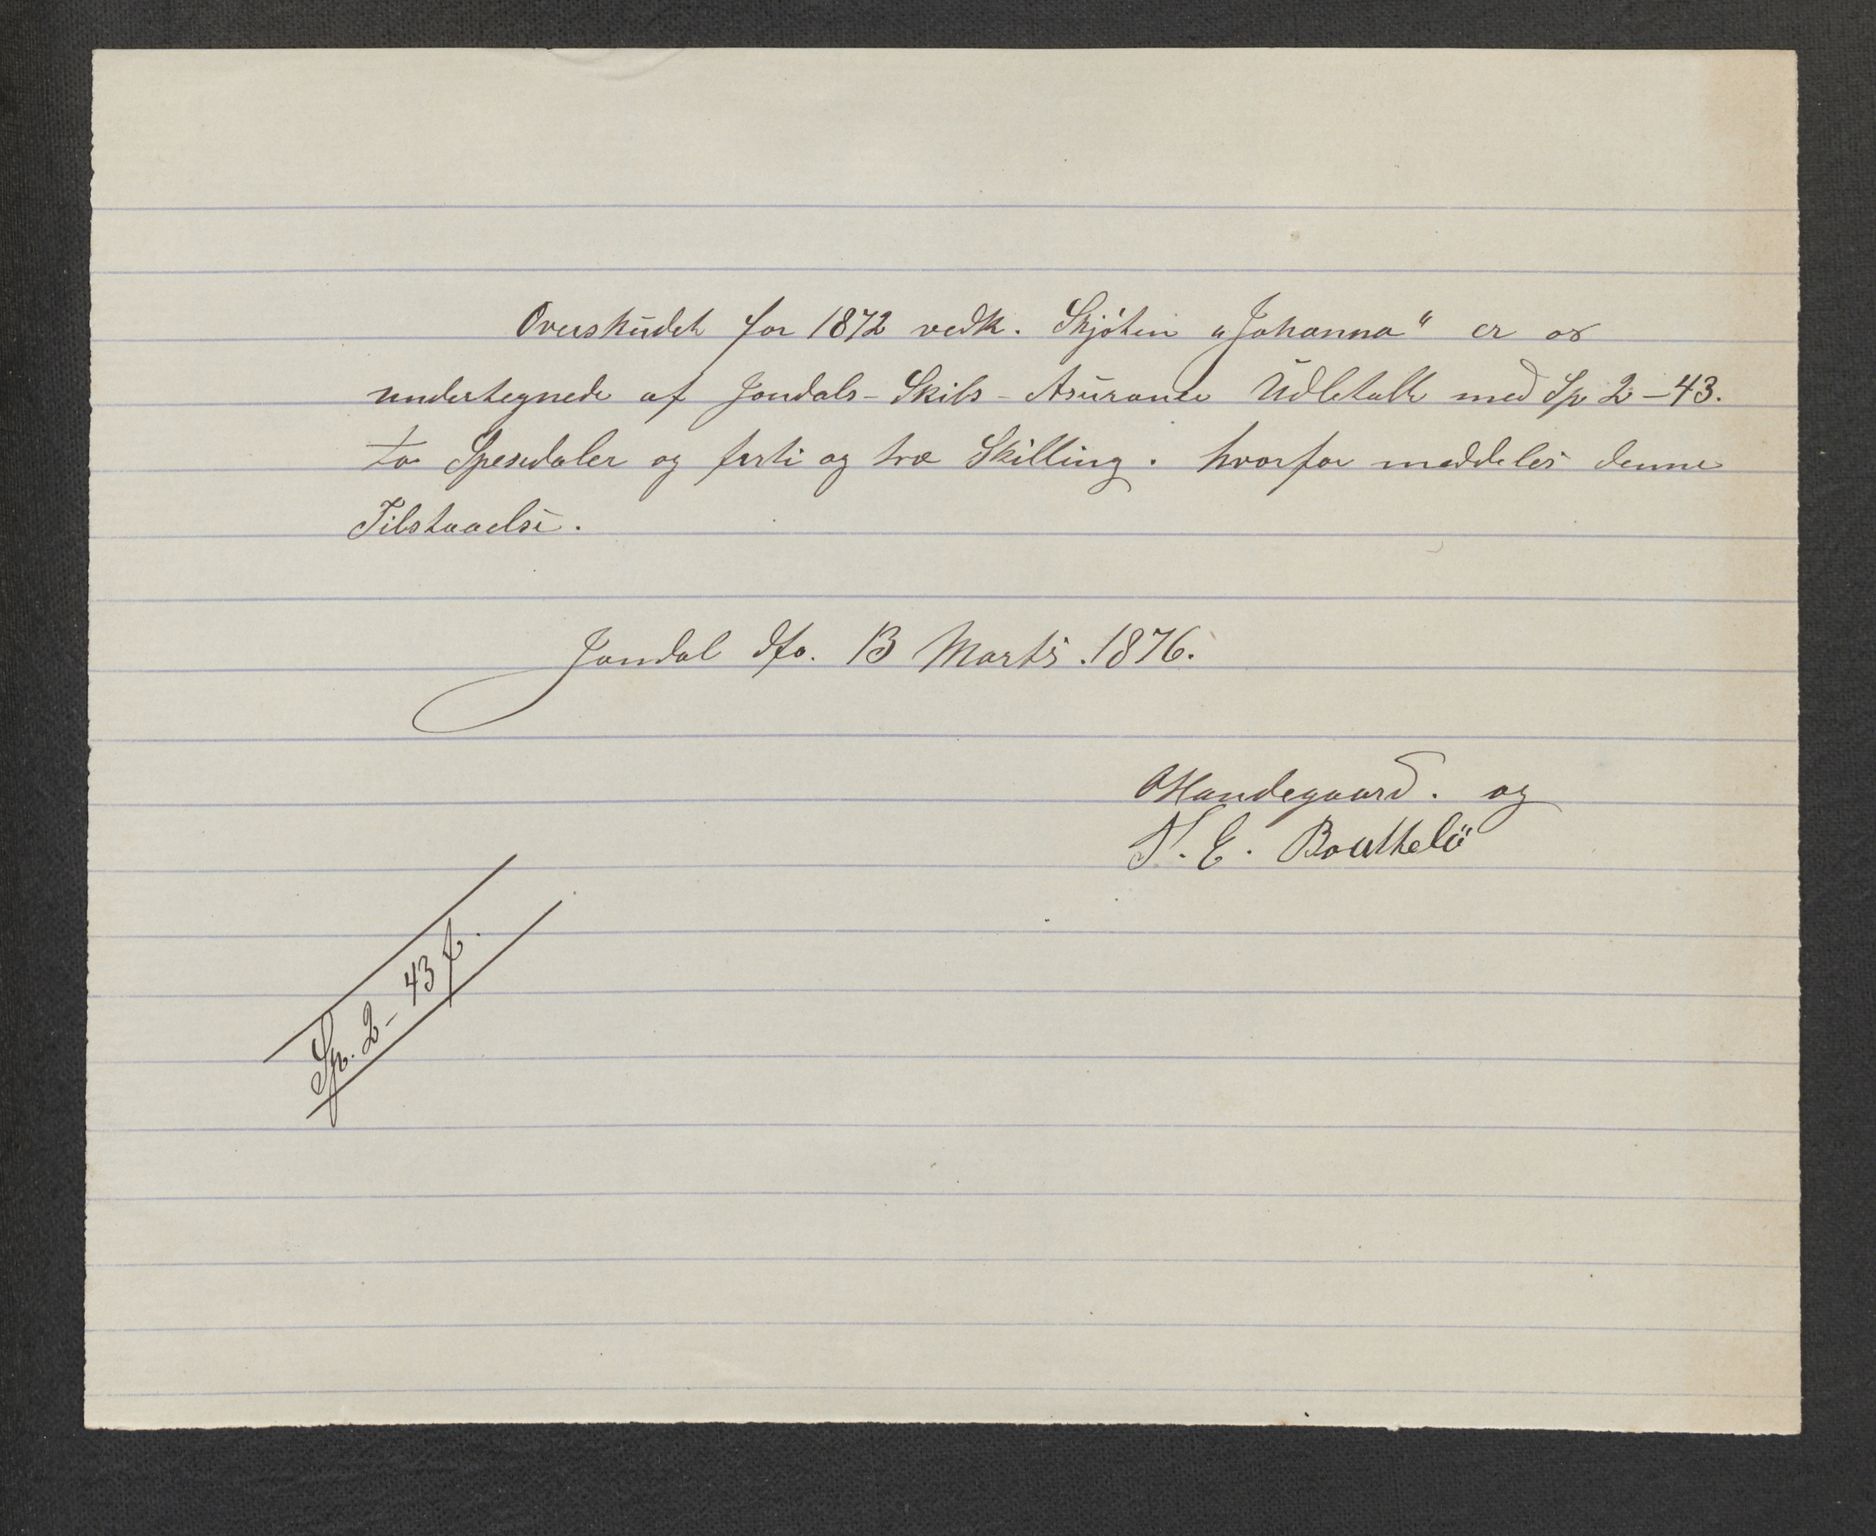 Overskudet for 1872 vedk. Skjöten „Johanna“ er os
undertegnede af Jondals-Skibs-Asurance Udbetalt med Sp 2-43.
to Spesidaler og førti og tre Skilling. hvorfor meddeles denne
Tilstaaelse.
Jondal dto. 13 Marts. 1876.
OHandegaard. og
E. Bouthelö
Sp. 2-43